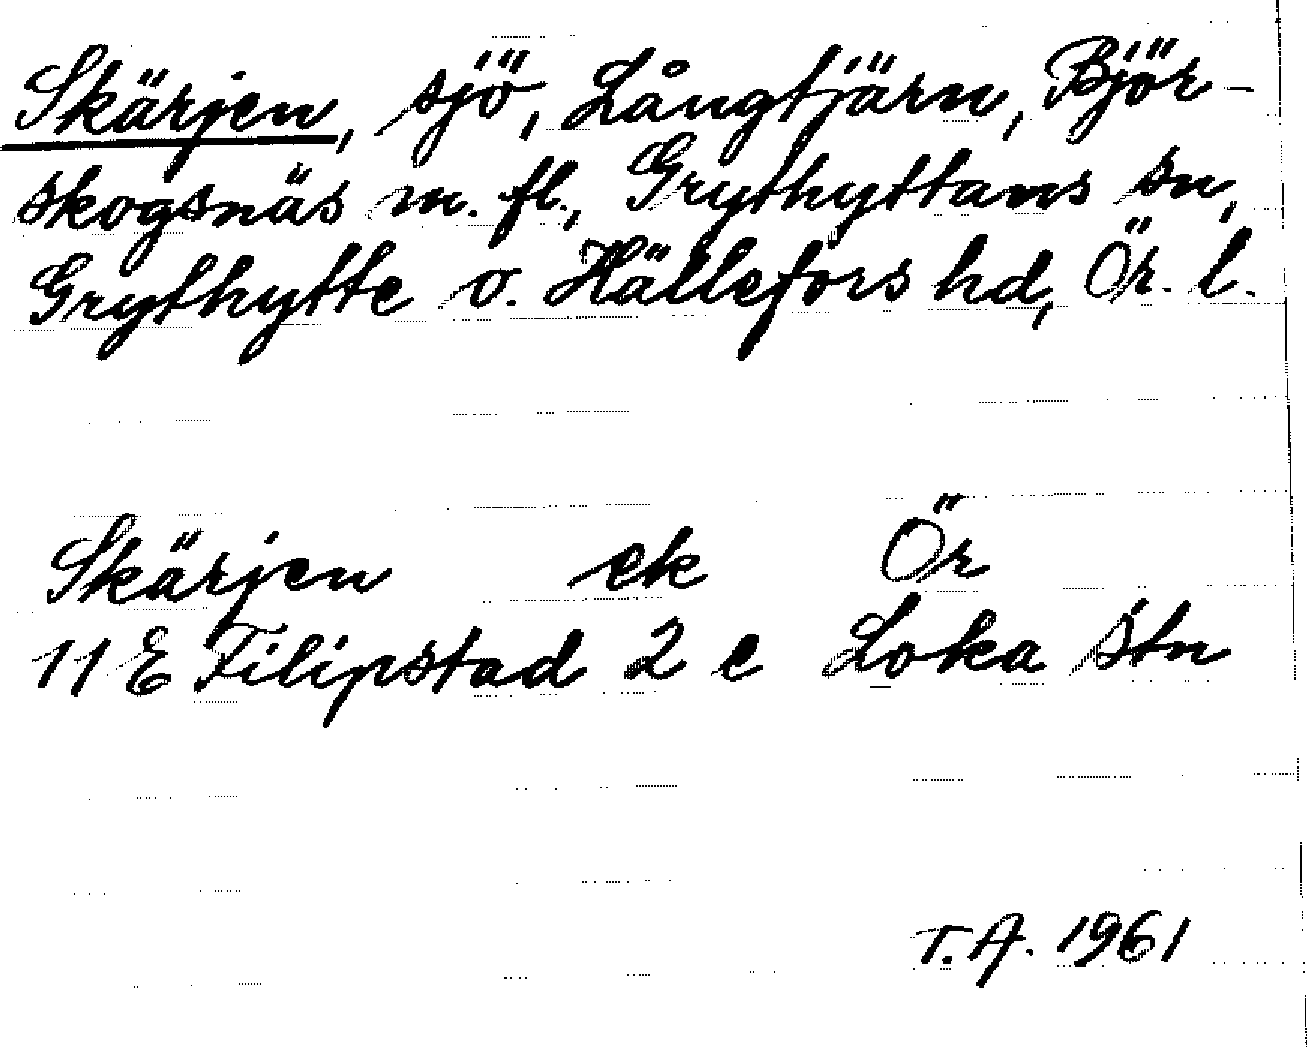 Skärjen, sjö, Långtjärn, Björ-
skogsnäs m. fl., Grythyttans sn,
Grythytte o. Hällefors hd, Ör. l.
Skärjen ek Ör
11 E Filipstad 2 e Loka Stn
T.A. 1961